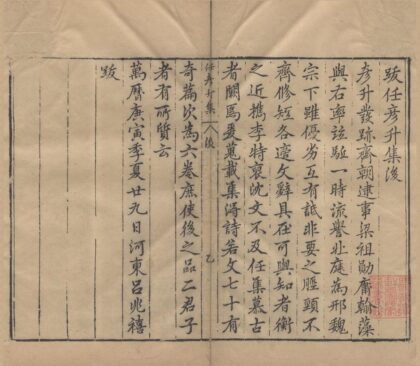 跋任彦升集後
彦升發跡齊朝逮事梁祖勛齊翰藻
與右率竝駈一時流譽北庭為邢魏
宗下雖優劣互有詆非要之脛頸不
齊修短各適文辭具在可與知者衡
之近檇李特裒沈文不及任集慕古
者闕焉爰蒐載集淂詩若文七十有
任彦升集 後 乙
奇篇次為六卷庶使後之品二君子
者有所質云
萬曆庚寅季夏廿九日河東呂兆禧
跋